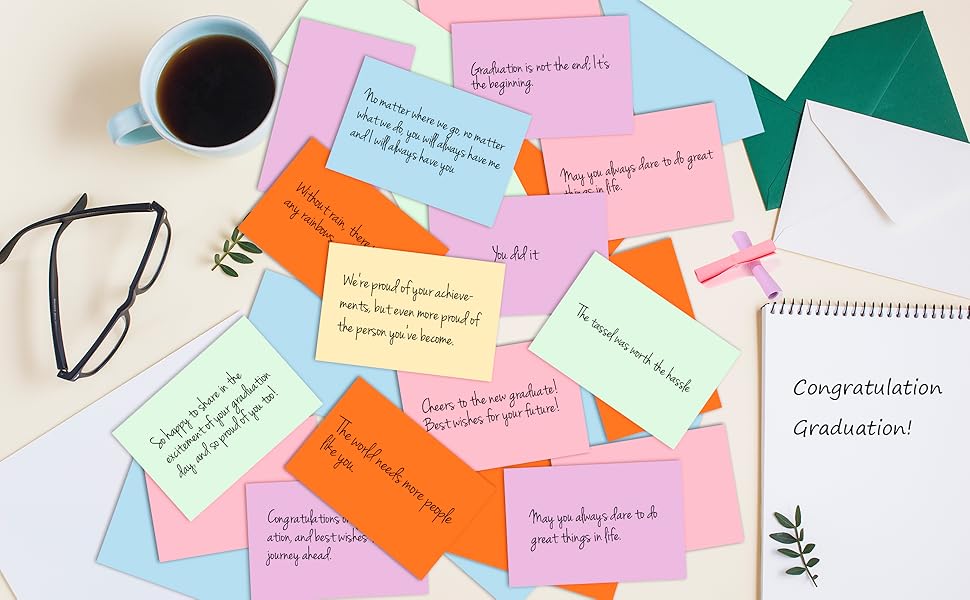 Graduation is not the end; It's
the beginning.
No matter where we go, no matter
what we do, you will always have me
and I will always have you
May you always dare to do great
things in life.
Without rain, there
any rainbows
You did it
We're proud of your achieve-
ments, but even more proud of
the person you've become.
The tassel was worth the hassle
Cheers to the new graduate!
Best wishes for your future!
So happy to share in the
excitement of your graduation
day, and so proud of you too!
The world needs more people
like you.
Congratulations
ation, and best wishes
journey ahead.
May you always dare to do
great things in life.
Congratulation
Graduation!